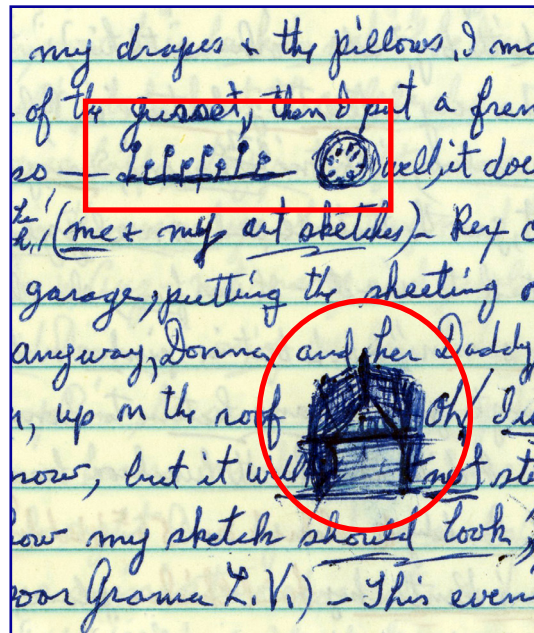 my drapes & the pillows, I ma
of the gusset, then I put a fren
so — well, it doe
(me & my art sketches) - Rex c
garage, putting the sheeting o
anyway, Donna and her Daddy
, up on the roof Oh! I w
now, but it will not ste
how my sketch should look,
oor Grama L.V.) - This even